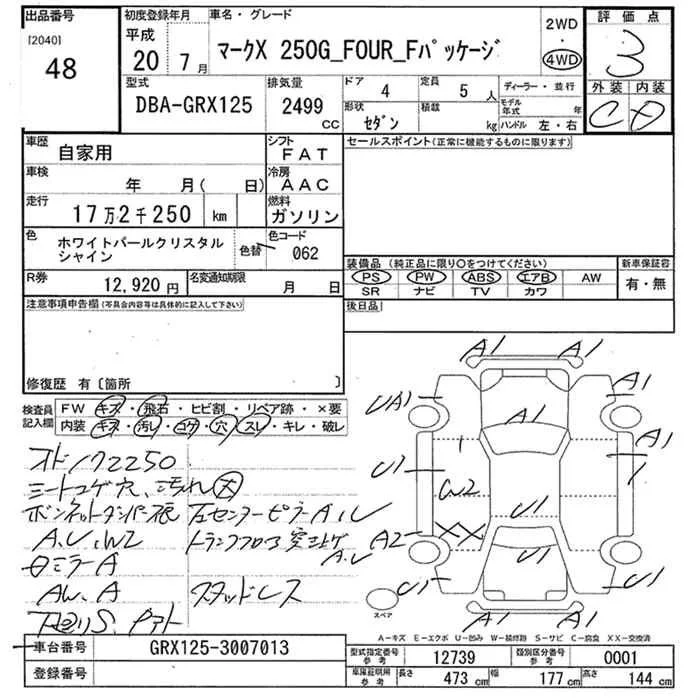 出品番号
[2040]
48
初度登録年月
平成
20年 7月
車名・グレード
マークX 250G_FOUR_Fパッケージ
2WD
・
4WD
評価点
3
外装 内装
C D
型式
DBA-GRX125
排気量
2499
CC
ドア 4
定員 5 人
形状 セダン
積載 kg
ディーラー・並行
モデル年式 年
ハンドル 左・右
車歴
自家用
シフト
FAT
車検
年 月( 日)
冷房
AAC
走行
17万2千250 km
燃料
ガソリン
色
ホワイトパールクリスタル
シャイン
色替
色コード
062
R券
12,920 円
名変通知期限
月 日
セールスポイント(正常に機能するものに限ります)
装備品(純正品に限り○をつけてください)
PS PW ABS エアB AW
SR ナビ TV カワ
新車保証書
有・無
後日品
注意事項申告欄(写真会内容等は具体的に記入して下さい)
修復歴 有〔箇所 〕
検査員
記入欄
FW キズ・飛石・ヒビ割・リペア跡・×要
内装 キズ・汚レ・コゲ・穴・スレ・キレ・破レ
オドノク2250
シートコゲ穴、汚れ大
ボンネットダンパー痕
左センターピラーA、U
A.U.W2
トランクフロア突上ゲ
A.U
ミラーA
AW.A
スタッドレス
下廻りS、
A1 A1
UA1
A1
A1
A1
U1
W2
U1
A2
XX
U1
U1
U1
A1 A1
スペア
A-キズ E-エクボ U-凹み W-補修跡 S-サビ C-腐食 XX-交換済
車台番号
GRX125-3007013
登録番号
型式指定番号
参考
12739
類別区分番号
参考
0001
車庫証明用
参考
長さ 473 cm
幅 177 cm
高さ 144 cm